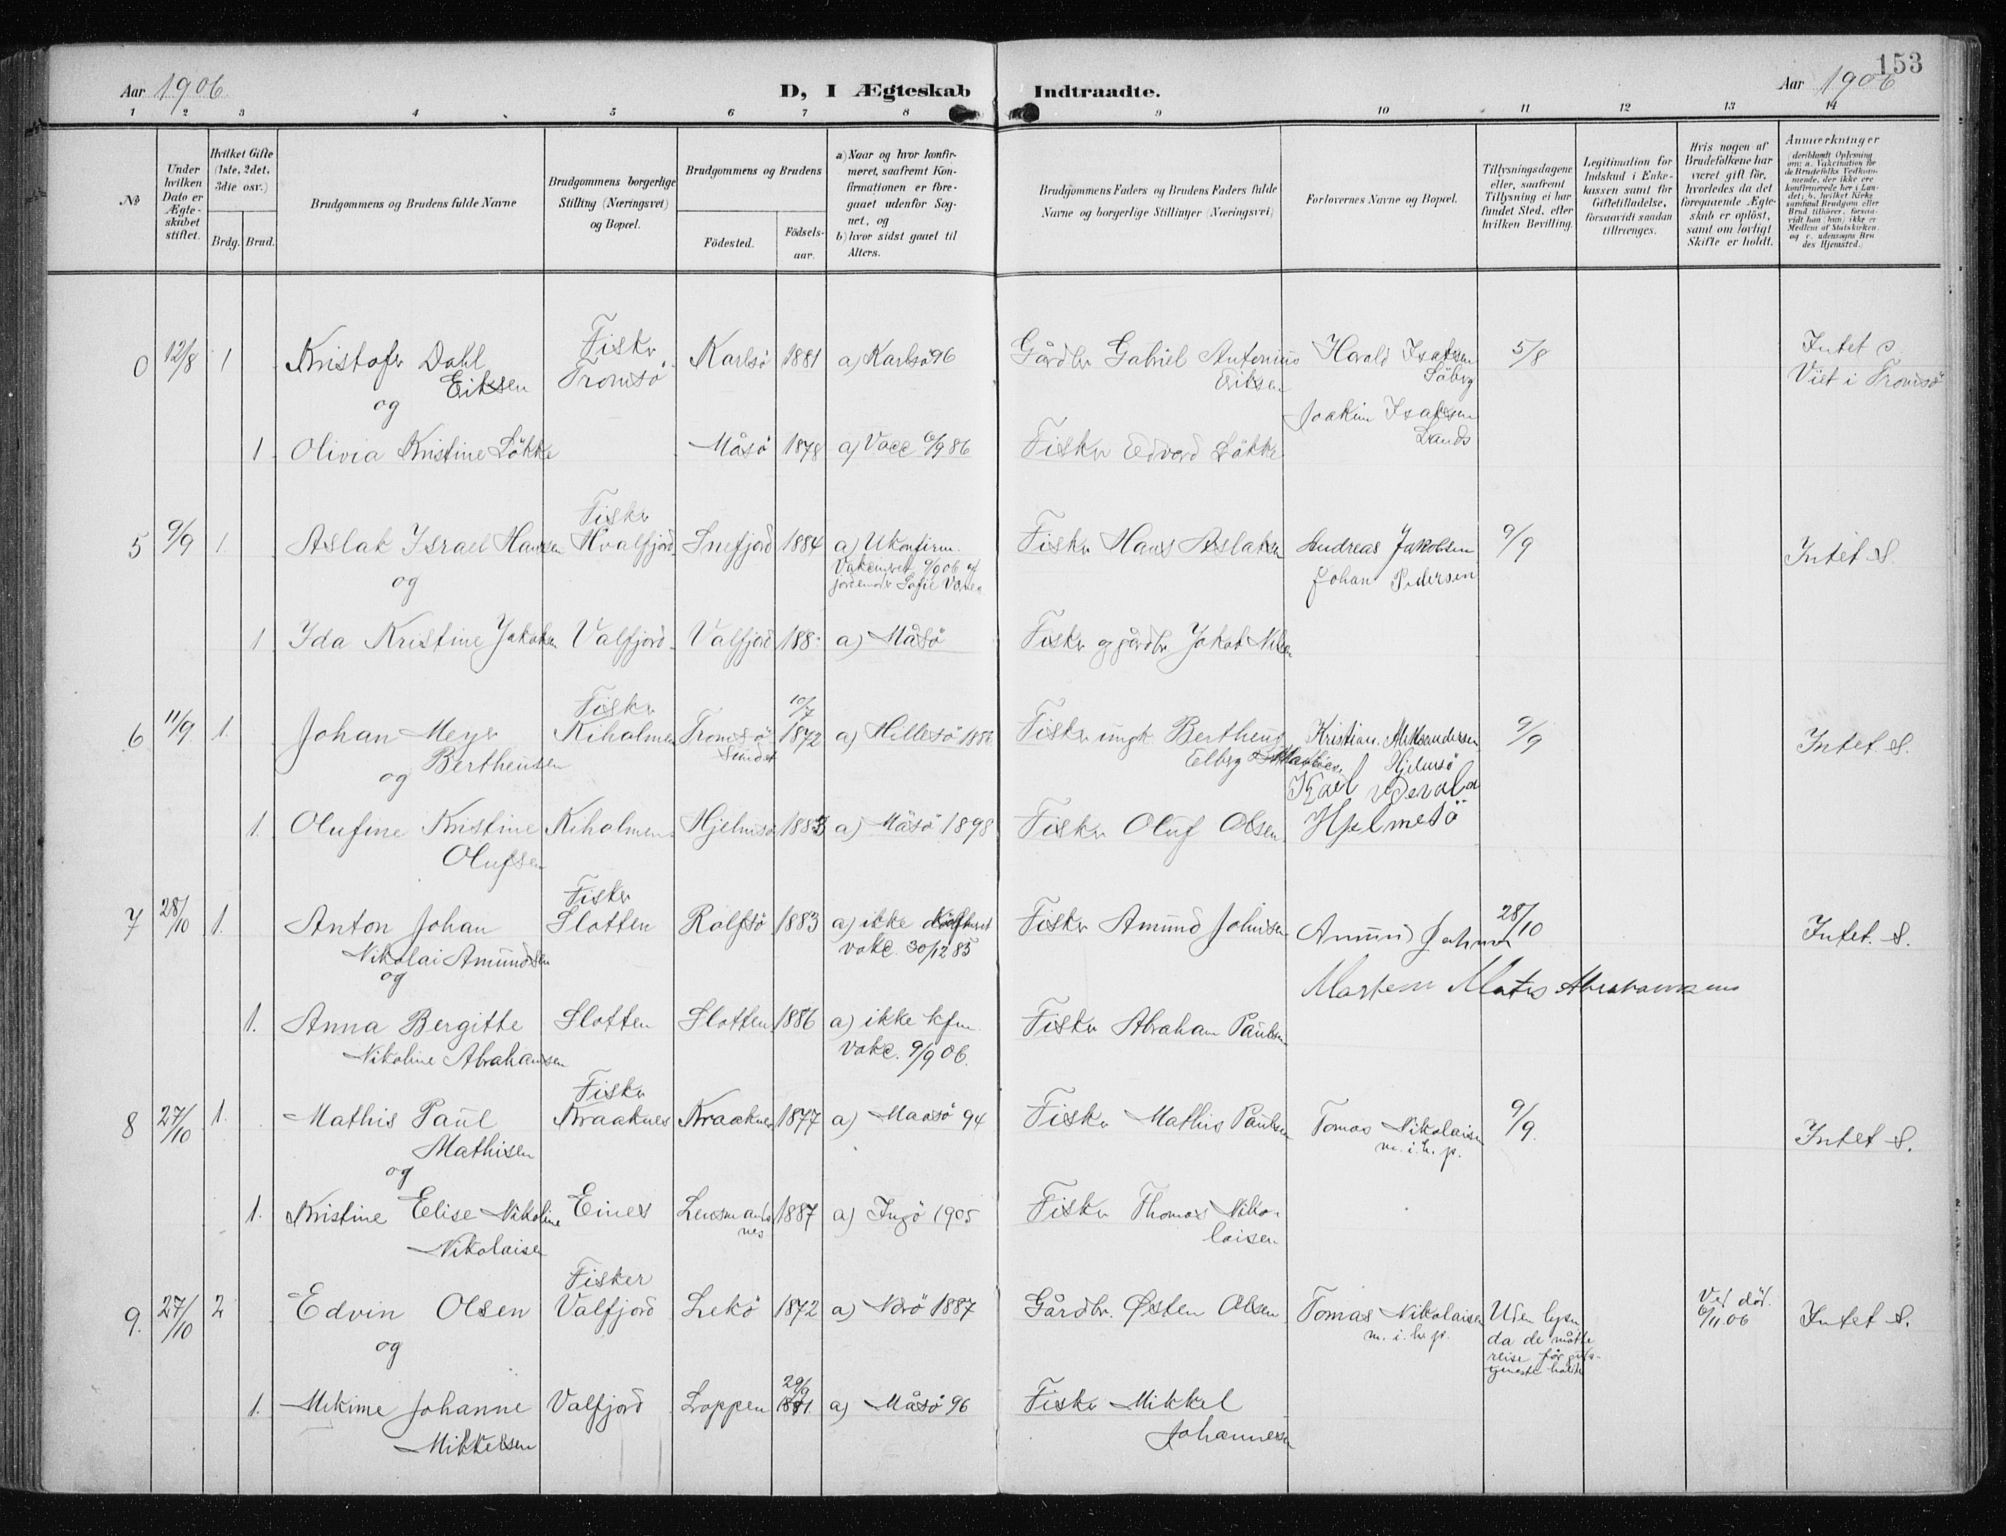 153
Aar 1906
D, I Ægteskab Indtraadte.
Aar 1906
1 2 3 4 5 6 7 8 9 10 11 12 13 14
No
Under hvilken Dato er Ægteskabet stiftet.
Hvilket Gifte (1ste, 2det, 3die osv.)
Brdg. Brud.
Brudgommens og Brudens fulde Navne
Brudgommens borgerlige Stilling (Næringsvei) og Bopæl.
Brudgommens og Brudens
Fødested.
Fødselsaar.
a) Naar og hvor konfirmeret, saafremt Konfirmationen er foregaaet udenfor Sognet, og
b) hvor sidst gaaet til Alters.
Brudgommens Faders og Brudens Faders fulde Navne og borgerlige Stillinger (Næringsvei)
Forlovernes Navne og Bopæl.
Tillysningsdagene eller, saafremt Tillysning ei har fundet Sted, efter hvilken Bevilling.
Legitimation for Indskud i Enkekassen samt for Giftetilladelse, forsaavidt saadan tiltrænges.
Hvis nogen af Brudefolkene har været gift før, hvorledes da det foregaaende Ægteskab er opløst, samt om lovligt Skifte er holdt.
Anmerkninger
0 12/8 1 Kristofer Dahl Eriksen Fisker Tromsö Karlsö 1881 a) Karlsö 96 Gårdbr Gabriel Antonius Eriksen Harald Isaksen 5/8 Intet S.
Viet i Tromsö
og
Joakim Isaksen
1 Olivia Kristine Lökke Måsö 1878 a) Vacc 86 Fisker Edvard Lökke
5 9/9 1. Aslak Israel Hansen Fisker Hvalfjord Snefjord 1884 a) Ukonfirm. Fisker Hans Aslaksen Andreas Jakobsen 9/9 Intet S.
og
Johan Pedersen
1 Ida Kristine Jakobsen Valfjord Valfjord 188 a) Måsö Fisker og gårdbr Jakob Nilsen
6 11/9 1. Johan Meyer Bertheusen Fisker Kiholmen Tromsö Sundet 10/7 1872 a) Hillesö 1886 Fisker ungk Bertheus Elberg Kristian Aleksandersen Hjelmsö 9/9 Intet S.
og
Karl
Hjelmesö
1. Olufine Kristine Olufsen Kiholmen Hjelmsö 1883 a) Måsö 1898 Fisker Oluf Olsen
7 28/10 1. Anton Johan Nikolai Amundsen Fisker Slotten Rolfsö 1883 a) ikke vakc. 30/12 85 Fisker Amund Johnsen Amund Johnsen 28/10 Intet. S.
og
Mates Abrahamsens
1. Anna Bergitte Nikoline Abrahamsen Slotten Slotten 1886 a) ikke kfm. vakc. 9/9 06. Fisker Abraham Paulsen
8 27/10 1. Mathis Paul Mathisen Fisker Kraaknes Kraaknes 1877 a) Maasö 94 Fisker Mathis Paulsen Tomas Nikolaisen m. i. h. p. 9/9. Intet S.
og
1. Kristine Elise Nikoline Nikolaisen Eines Lensmandsnes 1887 a) Ingö 1905 Fisker Thomas Nikolaisen
9. 27/10 2 Edvin Olsen Fisker Valfjord Lekö 1872 a) Nærö 1887 Gårdbr. Østen Olsen Tomas Nikolaisen m. i. h. p. Uden lysn da de måtte reise før Ved död. 6/11 06 Intet S.
og
1. Mekime Johanne Mikkelsen Valfjord Loppen 29/9 1881. a) Måsö 96 Fisker Mikkel Johannesen